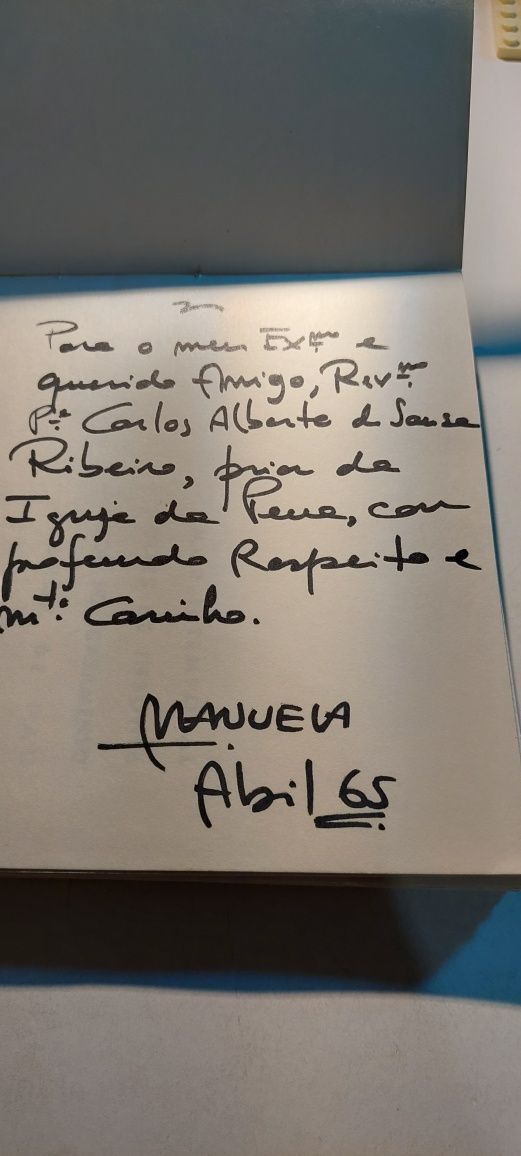 Para o meu Exmo e
querido Amigo, Revmo
Pe. Carlos Alberto de Sousa
Ribeiro, prior da
Igreja da Pena, com
profundo Respeito e
mto. Carinho.
MANUELA
Abril 65